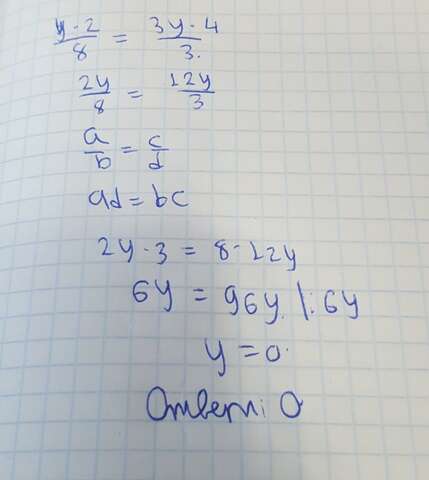 y·2/8 = 3y·4/3.
2y/8 = 12y/3
a/b = c/d
ad = bc
2y·3 = 8·12y
6y = 96y. |:6y
y = 0.
Ответ: 0